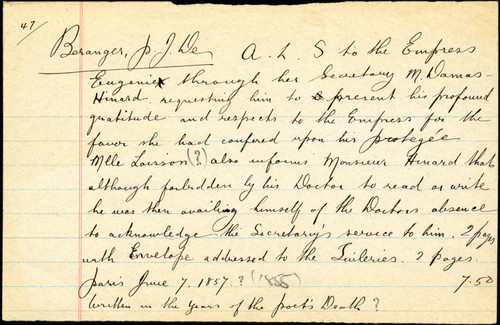 47/
Beranger, P. J. De A. L. S to the Empress
Eugenie through her Secretary M. Damas-
Hinard requesting him to present his profound
gratitude and respects to the Empress for the
favor she had confered upon his protegée
Mlle (?) also informs Monsieur Hinard that
although forbidden by his Doctor to read or write
he was then availing himself of the Doctors absence
to acknowledge the Secretary's service to him. 2 pages
with Envelope addressed to the Tuileries. 2 pages.
Paris June 7, 1857.? (1855) 7.50
Written in the years of the poet's Death ?